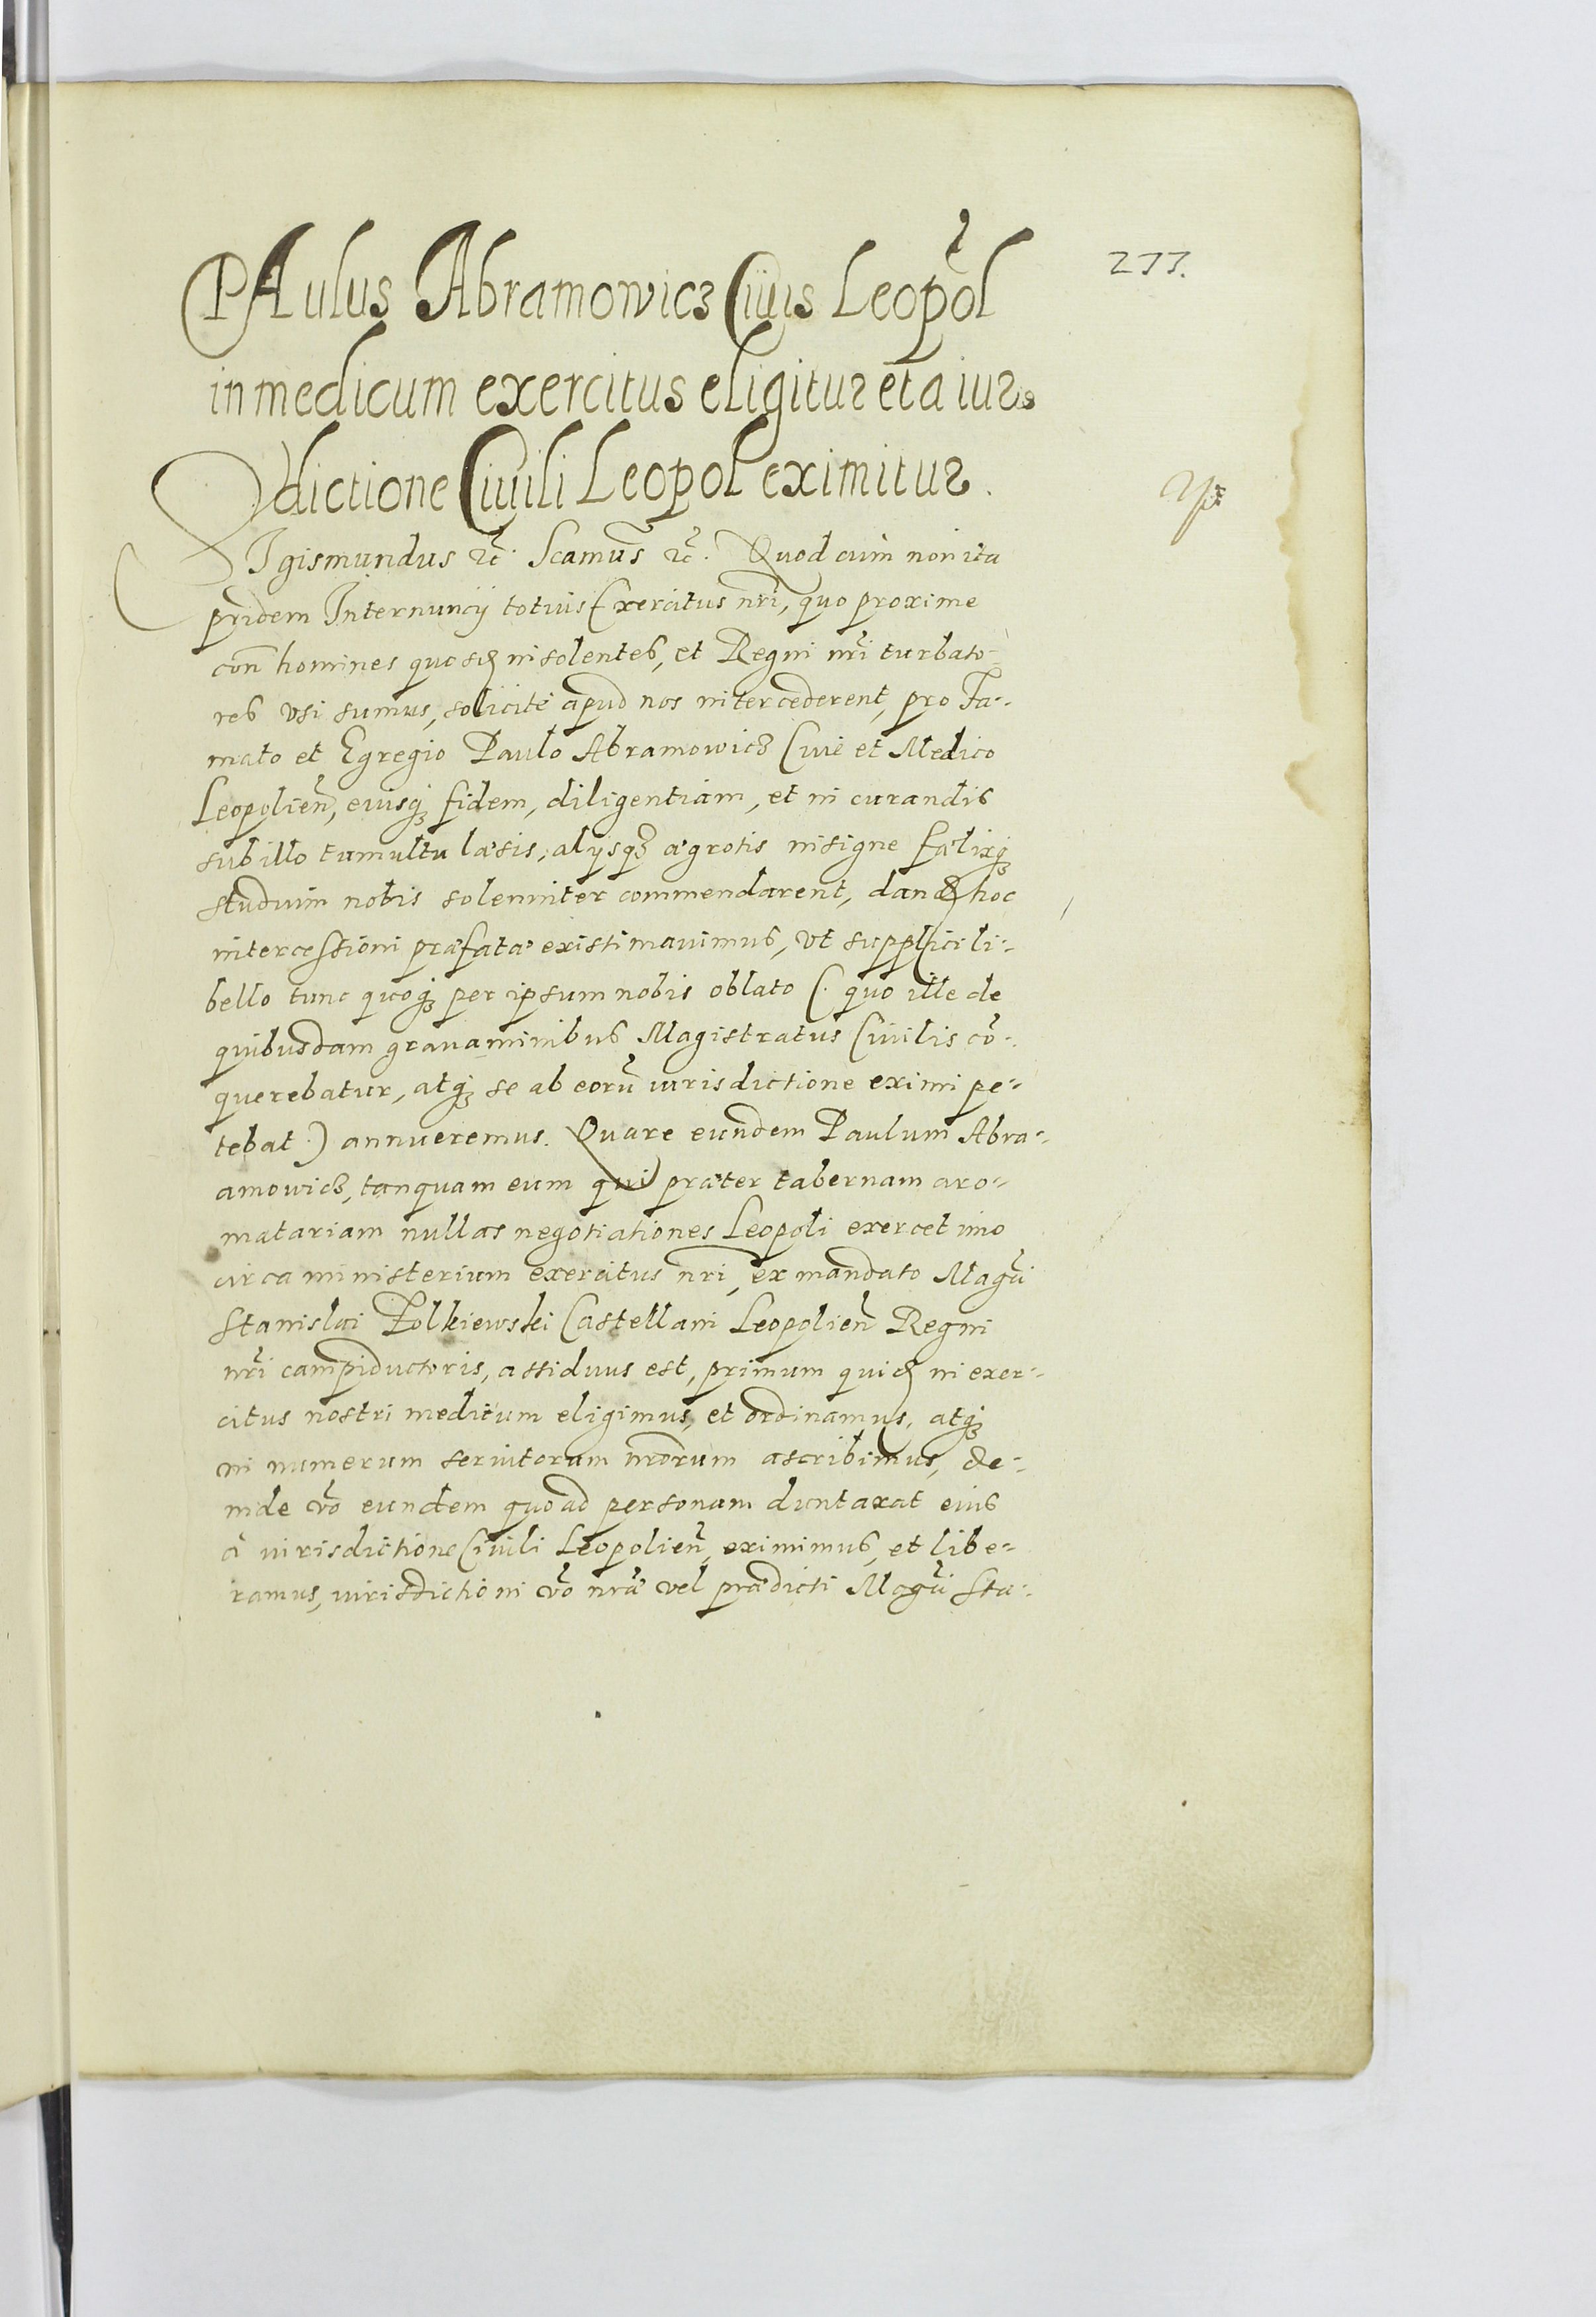 PAulus Abramowicz Ciuis Leopol
277.
in medicum exercitus eligitur et a iuris
dictione Ciuili Leopol eximitur.
SIgismundus etc. Scamus etc. Quod cum non ita
pridem Internuncij totius Exercitus nri, quo proxime
con homines quosd insolentes, et Regni nri turbato-
res vsi sumus, solicite apud nos intercederent, pro Fa-
mato et Egregio Paulo Abramowicz Ciue et Medico
Leopolien, eiusq fidem, diligentiam, et in curandis
sub illo tumultu læsis, alijsq ægrotis insigne fælixq
studium nobis solenniter commendarent, dand hoc
intercessioni præfatæ existimauimus, vt supplici li-
bello tunc quoq per ipsum nobis oblato (. quo ille de
quibusdam grauaminibus Magistratus Ciuilis co-
querebatur, atq se ab eorū iurisdictione eximi pe-
tebat .) annueremus. Quare eundem Paulum Abra-
amowicz, tanquam eum qui præter tabernam aro-
matariam nullas negotiationes Leopoli exercet imo
circa ministerium exercitus nri, ex mandato Magci
Stanislai Zolkiewski Castellani Leopolien Regni
nri campiductoris, assiduus est, primum quid in exer-
citus nostri medicum eligimus, et ordinamus, atq
in numerum seruitorum nrorum ascribimus, de-
inde vo eundem quo ad personam duntaxat eius
a iurisdictione Ciuili Leopolien eximimus, et libe-
ramus, iurisdictioni vo nræ vel prædicti Magci Sta-